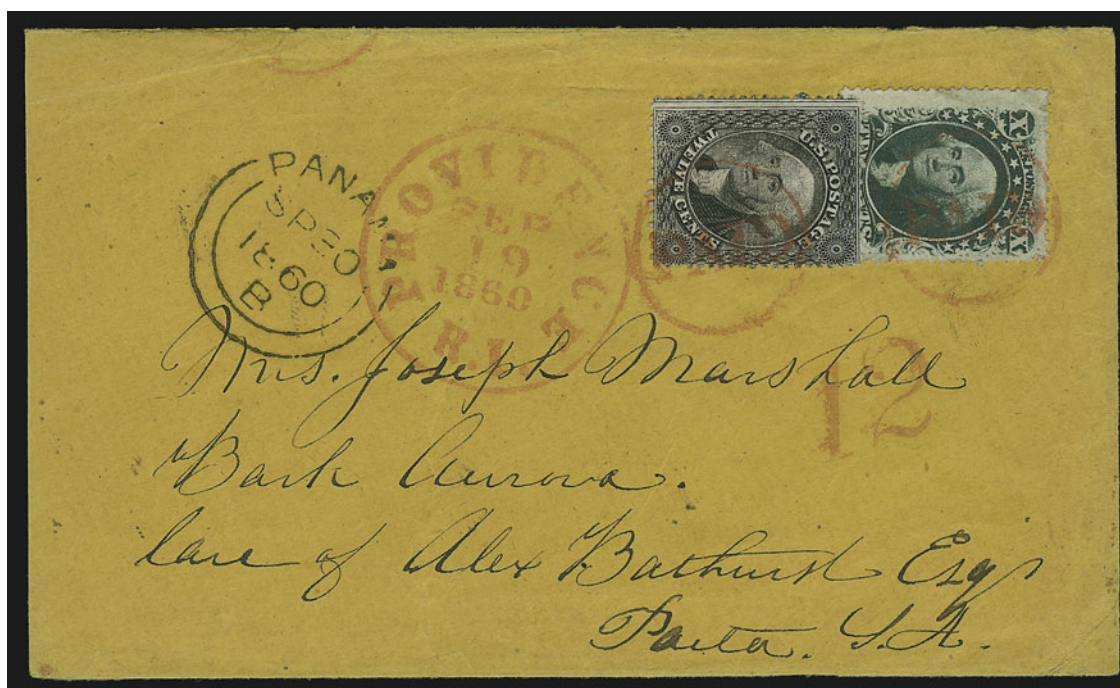 PANAMA
SP20
1860
B
PROVIDENCE
R.I.
SEP
19
1860
U.S. POSTAGE
TWELVE CENTS
X
X
PAID
PAID
12
Mrs. Joseph Marshall
Bark Aurora.
Care of Alex Bathurst Esq
Paita. S.A.